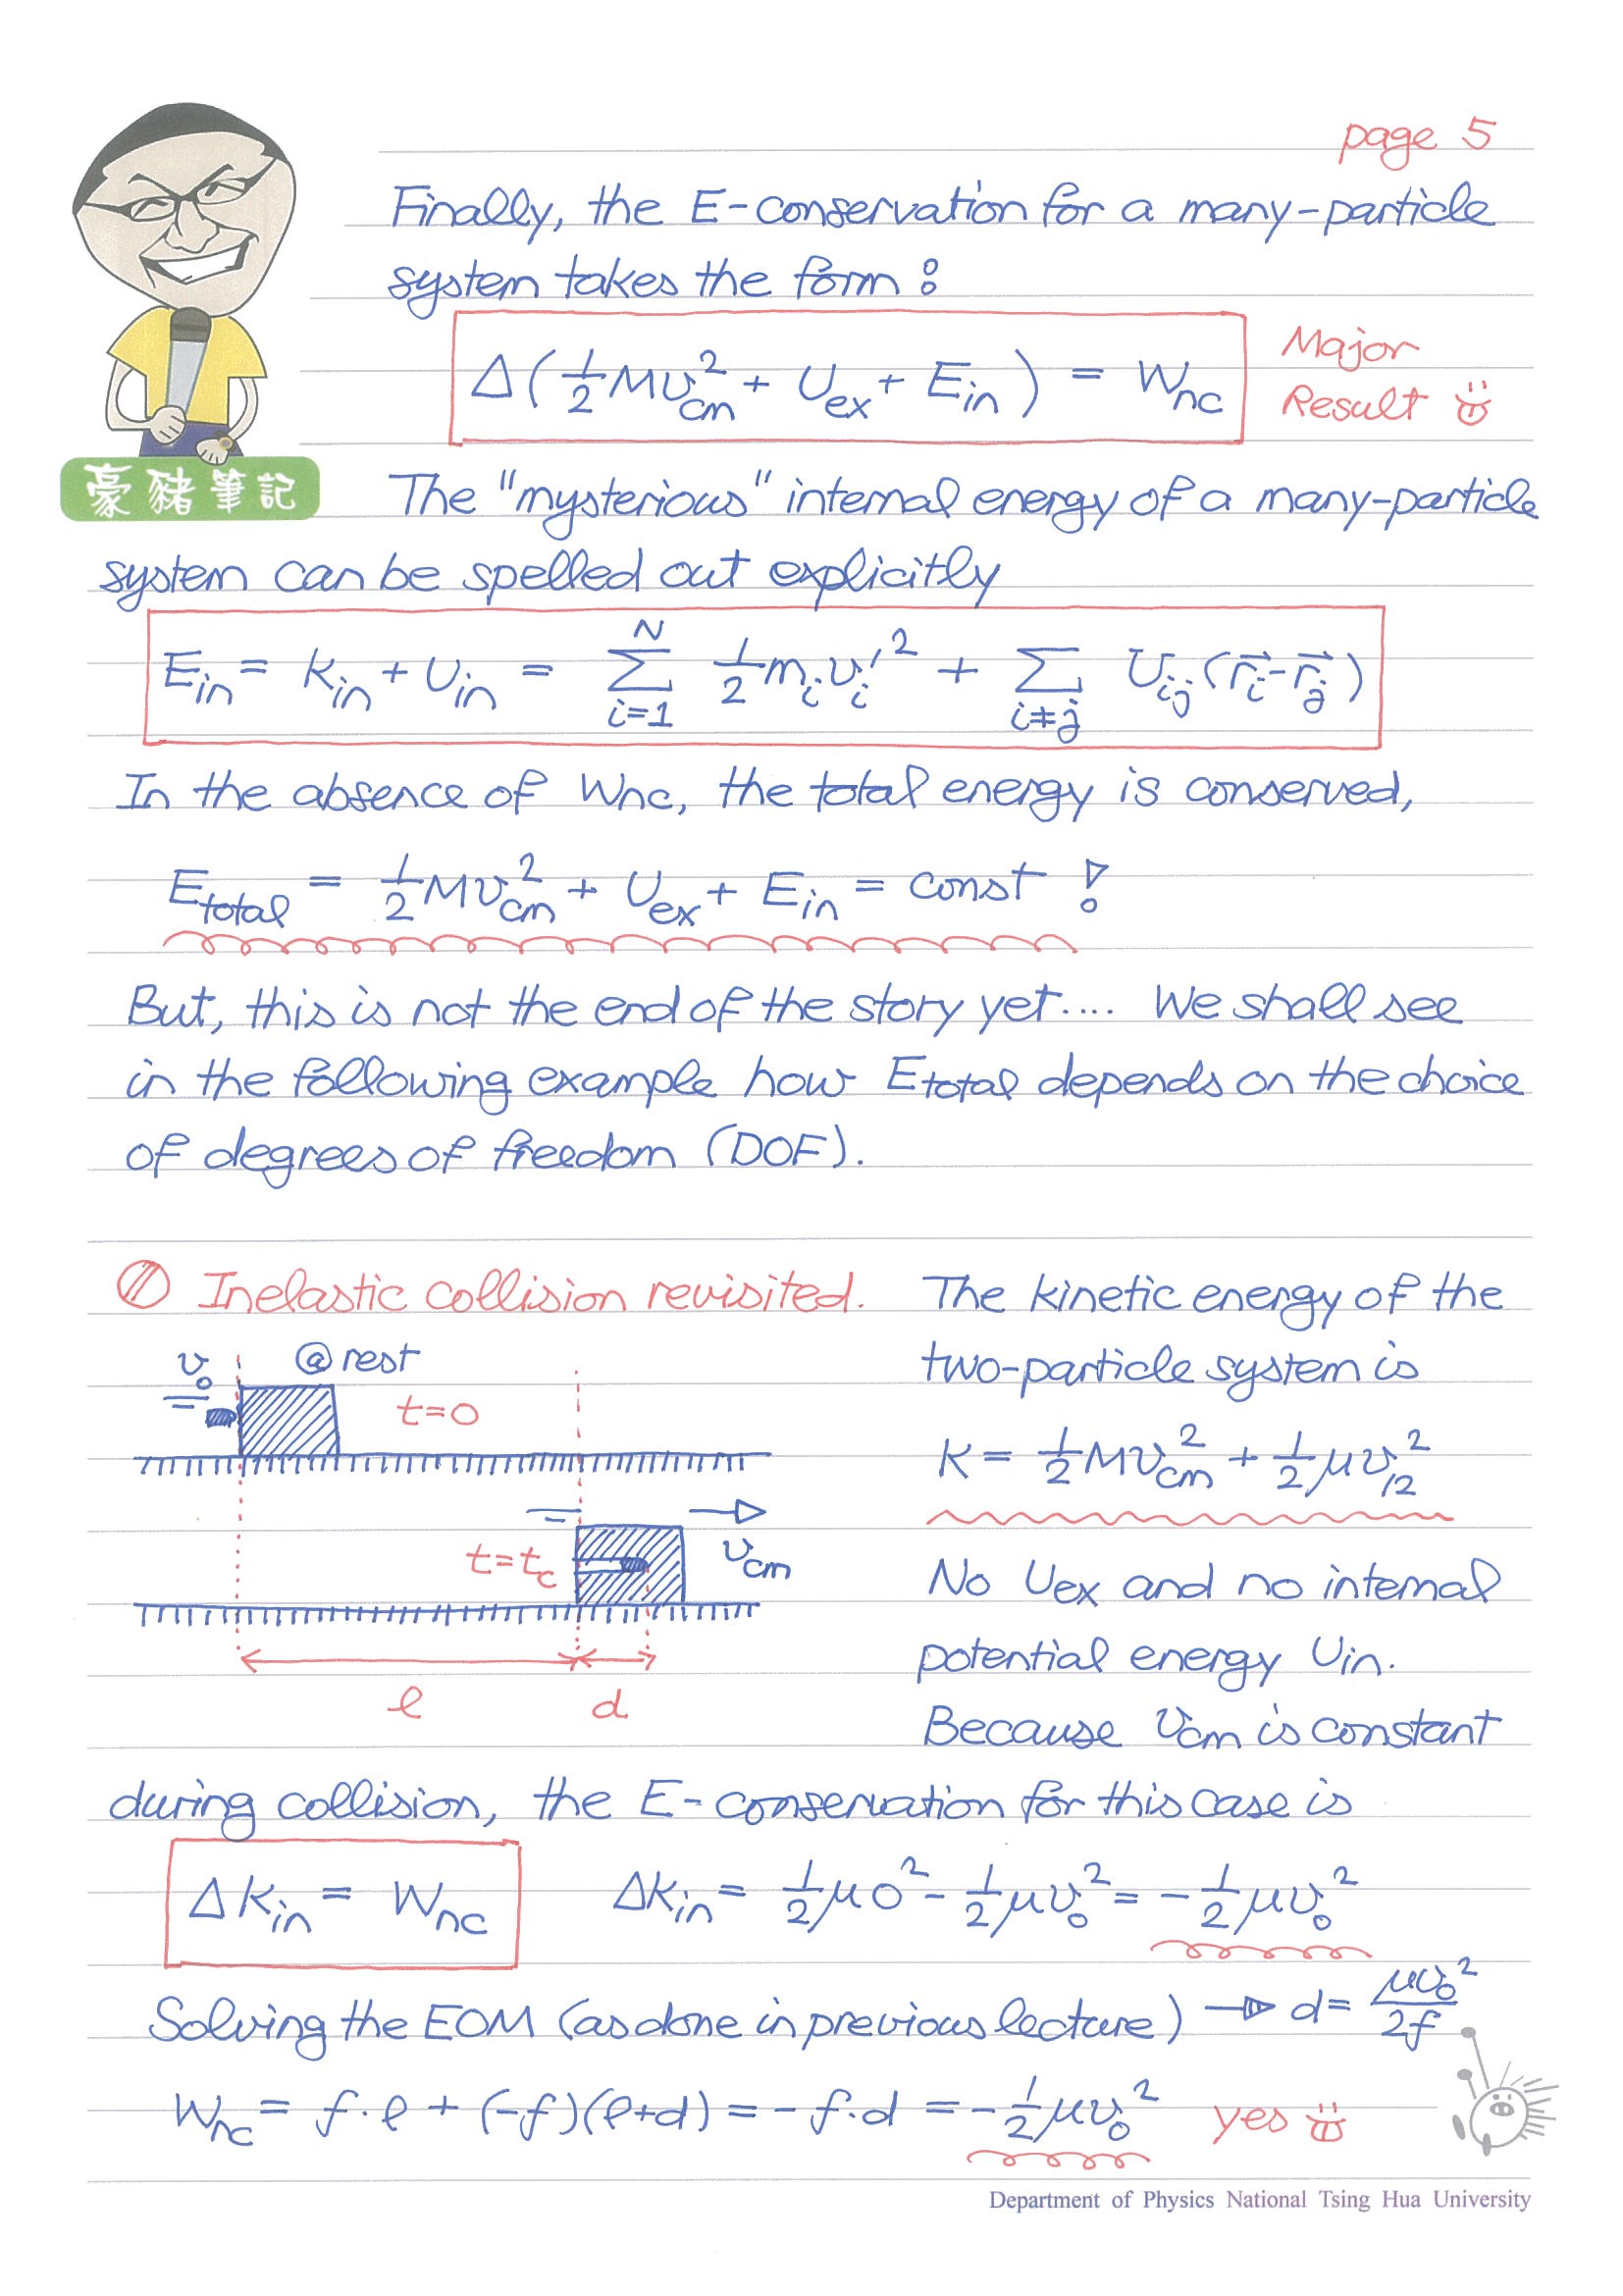 page 5
Finally, the E-conservation for a many-particle
system takes the form:
Δ(½Mv_cm² + U_ex + E_in) = W_nc
Major
Result
豪豬筆記
The "mysterious" internal energy of a many-particle
system can be spelled out explicitly
E_in = K_in + U_in = Σ_{i=1}^{N} ½m_i v_i'² + Σ_{i≠j} U_ij(r⃗_i - r⃗_j)
In the absence of W_nc, the total energy is conserved,
E_total = ½Mv_cm² + U_ex + E_in = const !
But, this is not the end of the story yet.... We shall see
in the following example how E_total depends on the choice
of degrees of freedom (DOF).
Inelastic collision revisited.
v_0
@ rest
t=0
t=t_c
v_cm
ℓ
d
The kinetic energy of the
two-particle system is
K = ½Mv_cm² + ½μv_12²
No U_ex and no internal
potential energy U_in.
Because v_cm is constant
during collision, the E-conservation for this case is
ΔK_in = W_nc
ΔK_in = ½μ0² - ½μv_0² = -½μv_0²
Solving the EOM (as done in previous lecture) → d = μv_0²/2f
W_nc = f·ℓ + (-f)(ℓ+d) = -f·d = -½μv_0² yes
Department of Physics National Tsing Hua University